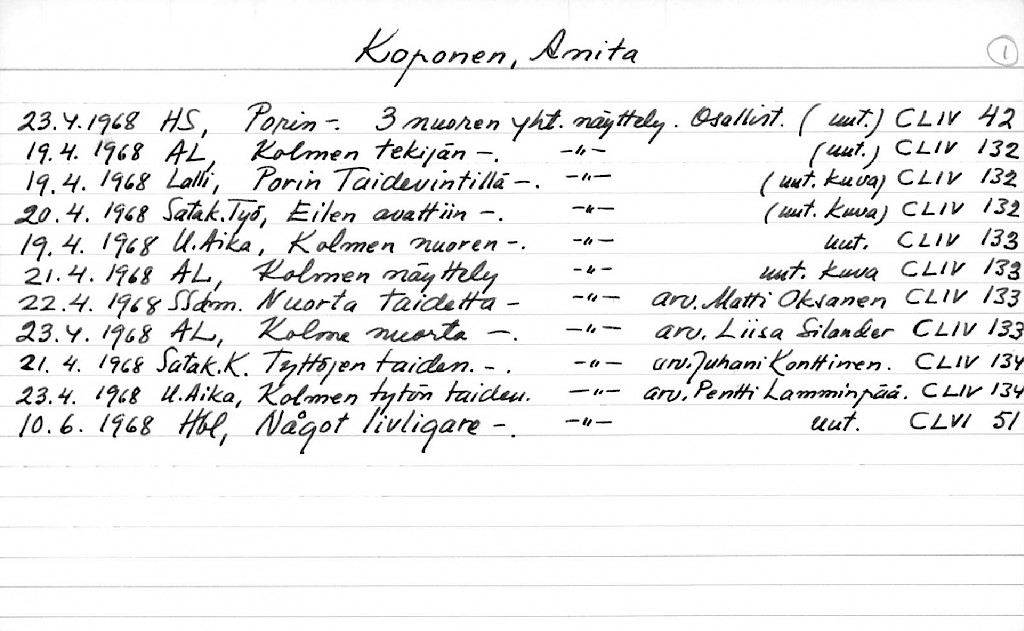 Koponen, Anita 1
23.4.1968 HS, Porin -. 3 nuoren yht. näyttely. Osallist. (uut.) CLIV 42
19.4. 1968 AL, Kolmen tekijän -. -"- (uut.) CLIV 132
19.4. 1968 Lalli, Porin Taidevintillä -. -"- (uut. kuva) CLIV 132
20.4. 1968 Satak.Työ, Eilen avattiin -. -"- (uut. kuva) CLIV 132
19.4. 1968 U.Aika, Kolmen nuoren -. -"- uut. CLIV 133
21.4. 1968 AL, Kolmen näyttely -"- uut. kuva CLIV 133
22.4. 1968 SSdm. Nuorta taidetta - -"- arv. Matti Oksanen CLIV 133
23.4. 1968 AL, Kolme nuorta -. -"- arv. Liisa Silander CLIV 133
21. 4. 1968 Satak.K. Tyttöjen taiden. -. -"- arv. Juhani Konttinen. CLIV 134
23.4. 1968 U.Aika, Kolmen tytön taiden. -"- arv. Pentti Lamminpää. CLIV 134
10.6. 1968 Hbl, Något livligare -. -"- uut. CLVI 51